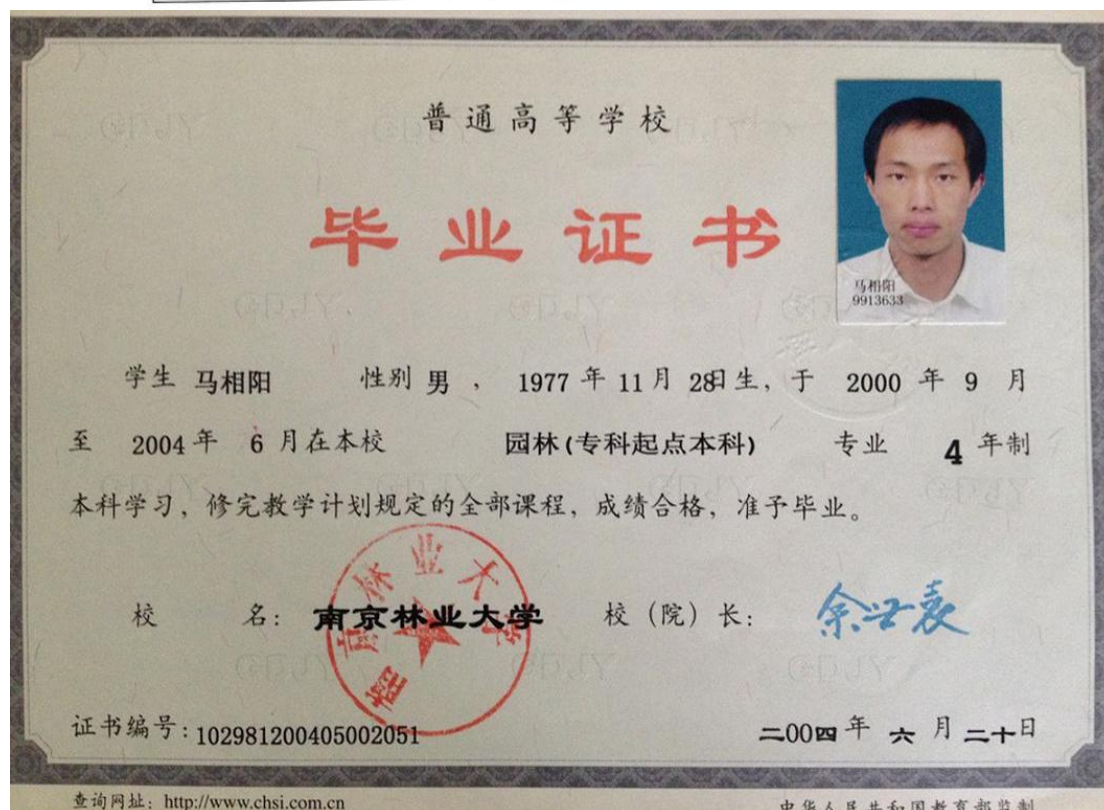 普通高等学校
毕业证书
马相阳
9913633
学生 马相阳 性别 男 ， 1977 年 11 月 28日生，于 2000 年 9 月
至 2004 年 6 月在本校 园林(专科起点本科) 专业 4 年制
本科学习，修完教学计划规定的全部课程，成绩合格，准予毕业。
南京林业大学
校 名： 南京林业大学 校（院）长： 余世袁
证书编号：102981200405002051 二00四 年 六 月 二十日
查询网址：http://www.chsi.com.cn 中华人民共和国教育部监制